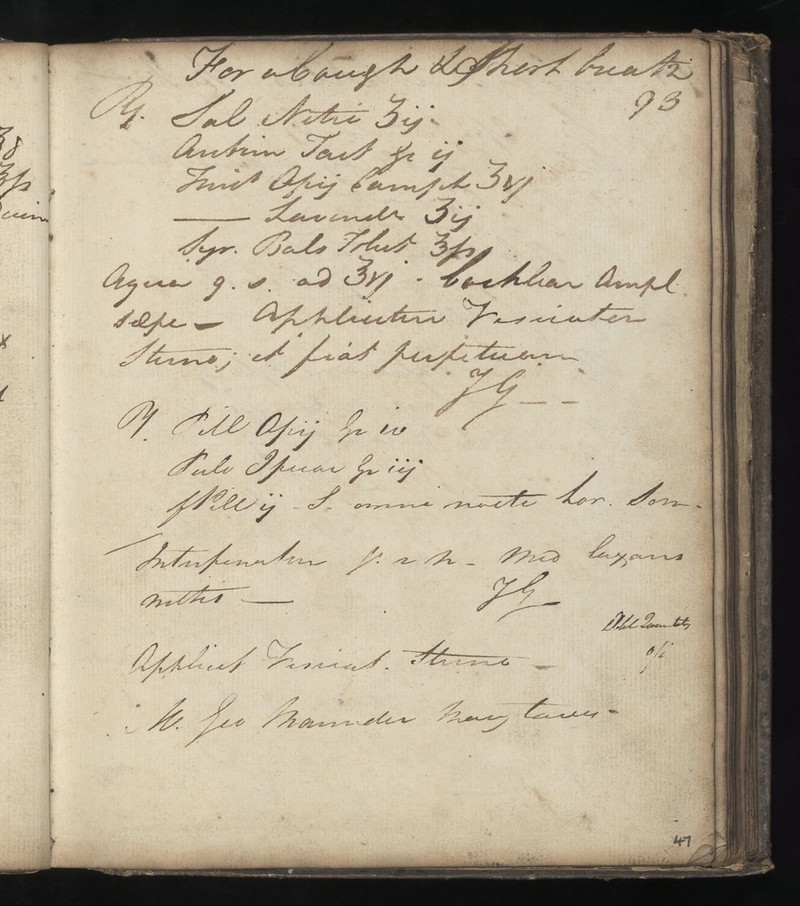 For a Cough & Short breath
93
℞. Sal Nitri ʒij
Antim Tart gr ij
Tinct Opij Camph ʒvj
—— Lavendr ʒij
Syr. Bals Tolut ℥ſs
Aquæ q. s. ad ℥vj - Cochlear Ampl.
sæpe — Applicetur Vesicator
Sterno; et fiat perpetuum
JG — —
℞. Pill Opij gr iv
Pulv Ipecac gr iij
f Pill ij - S. omni nocte hor. Som-
Interponatur p. r n - Med laxans
mitis —
JG
Applicet Vesicat. Sterno —
Mr. Geo Maunder
47